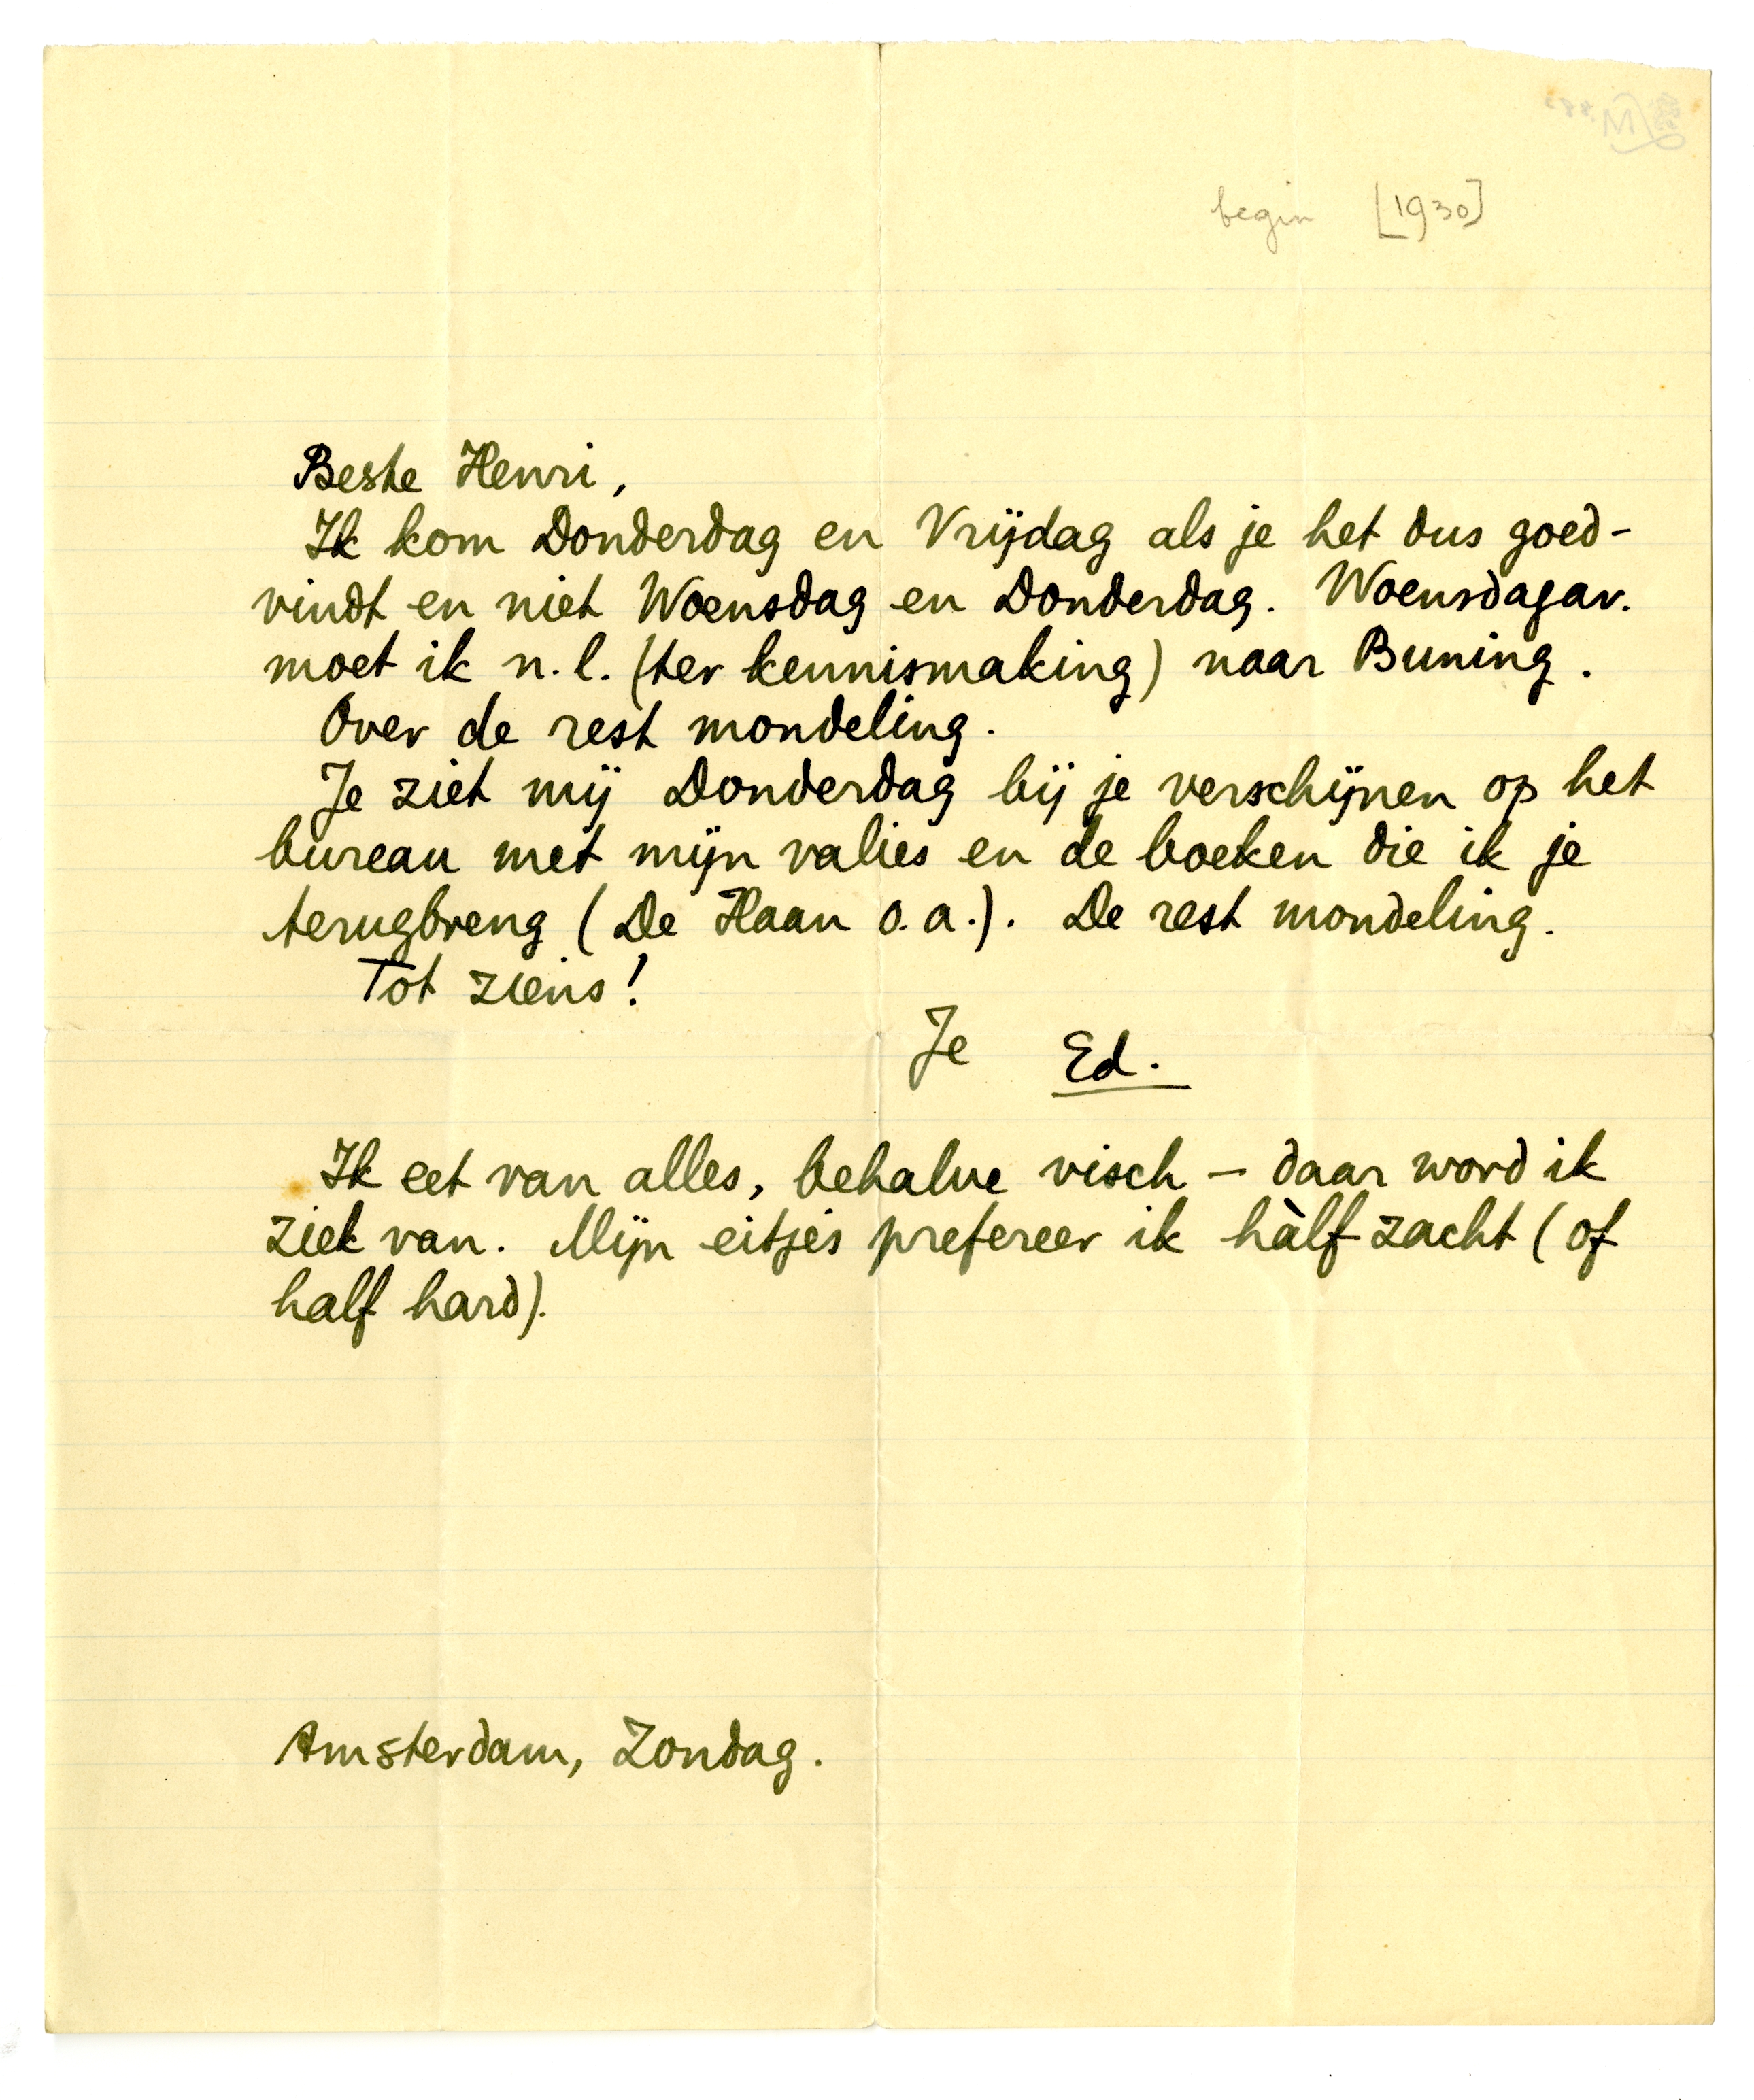 begin [1930]
Beste Henri,
Ik kom Donderdag en Vrijdag als je het dus goed-
vindt en niet Woensdag en Donderdag. Woensdagav.
moet ik n.l. (ter kennismaking) naar Buning.
Over de rest mondeling.
Je ziet mij Donderdag bij je verschijnen op het
bureau met mijn valies en de boeken die ik je
terugbreng (De Haan o.a.). De rest mondeling.
Tot ziens!
Je Ed.
Ik eet van alles, behalve visch – daar word ik
ziek van. Mijn eitjes prefereer ik hàlf zacht (of
half hard).
Amsterdam, Zondag.